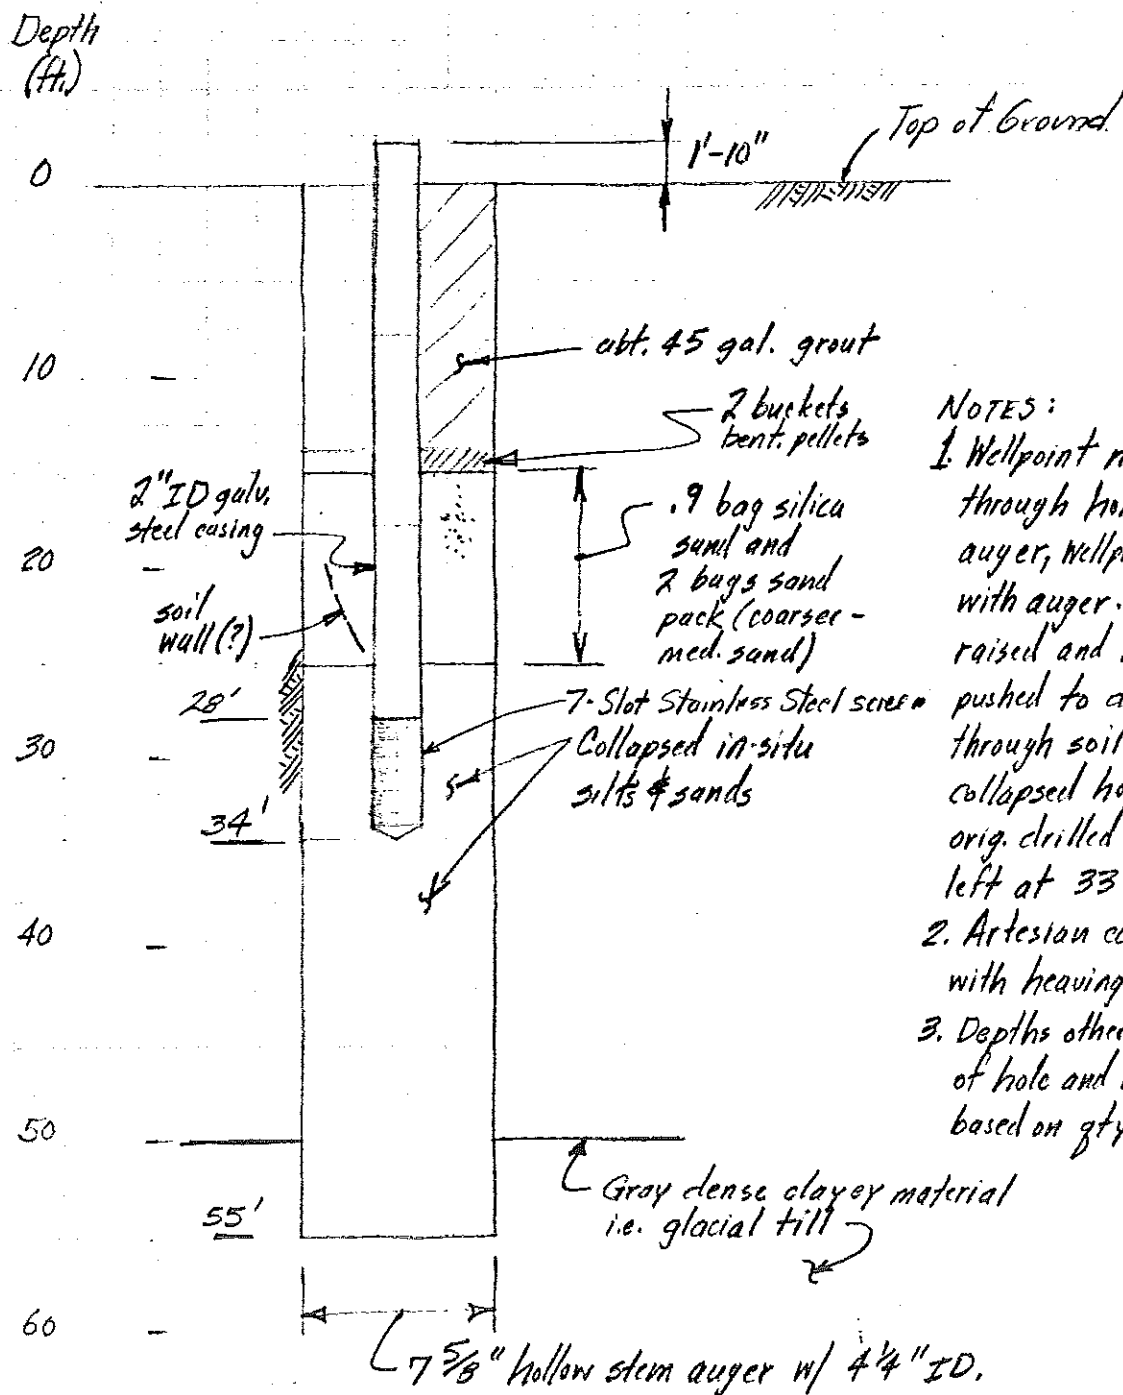 Depth
(ft.)
Top of Ground
1'-10"
0
abt. 45 gal. grout
10
2 buckets
bent. pellets
2" ID galv.
steel casing
.9 bag silica
sand and
2 bags sand
pack (coarser-
med. sand)
20
soil
wall (?)
28'
7-Slot Stainless Steel screen
30
Collapsed in-situ
silts & sands
34'
40
50
Gray dense clayey material
i.e. glacial till
55'
60
7 5/8" hollow stem auger w/ 4 1/4" ID.
NOTES:
1. Wellpoint
through
auger,
with auger.
raised and
pushed to
through soil
collapsed
orig. drilled
left at 33
2. Artesian
with heaving
3. Depths
of hole and
based on qty